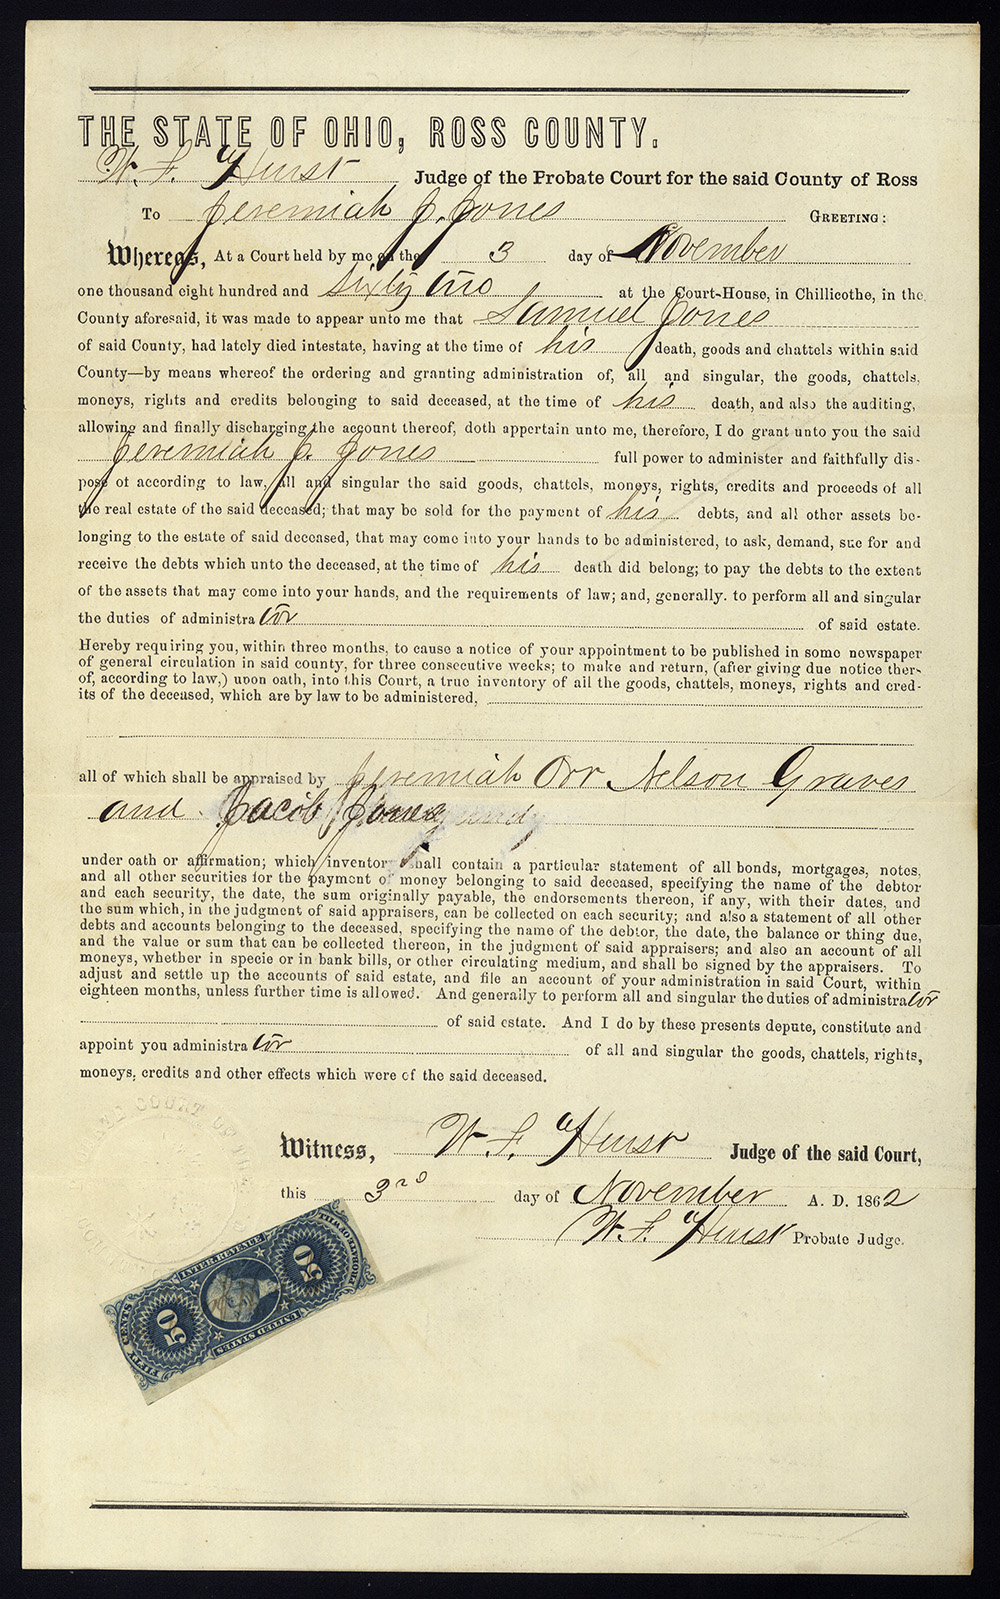 THE STATE OF OHIO, ROSS COUNTY.
W. F. Hurst Judge of the Probate Court for the said County of Ross
To Jeremiah J. Jones GREETING:
Whereas, At a Court held by me on the 3 day of November
one thousand eight hundred and sixty two at the Court-House, in Chillicothe, in the
County aforesaid, it was made to appear unto me that Samuel Jones
of said County, had lately died intestate, having at the time of his death, goods and chattels within said
County—by means whereof the ordering and granting administration of, all and singular, the goods, chattels,
moneys, rights and credits belonging to said deceased, at the time of his death, and also the auditing,
allowing and finally discharging the account thereof, doth appertain unto me, therefore, I do grant unto you the said
Jeremiah J. Jones full power to administer and faithfully dis-
pose of according to law, all and singular the said goods, chattels, moneys, rights, credits and proceeds of all
the real estate of the said deceased; that may be sold for the payment of his debts, and all other assets be-
longing to the estate of said deceased, that may come into your hands to be administered, to ask, demand, sue for and
receive the debts which unto the deceased, at the time of his death did belong; to pay the debts to the extent
of the assets that may come into your hands, and the requirements of law; and, generally. to perform all and singular
the duties of administrator of said estate.
Hereby requiring you, within three months, to cause a notice of your appointment to be published in some newspaper
of general circulation in said county, for three consecutive weeks; to make and return, (after giving due notice ther-
of, according to law,) upon oath, into this Court, a true inventory of all the goods, chattels, moneys, rights and cred-
its of the deceased, which are by law to be administered,
all of which shall be appraised by Jeremiah Orr Nelson Graves
and Jacob Jones
under oath or affirmation; which inventory shall contain a particular statement of all bonds, mortgages, notes,
and all other securities for the payment of money belonging to said deceased, specifying the name of the debtor
and each security, the date, the sum originally payable, the endorsements thereon, if any, with their dates, and
the sum which, in the judgment of said appraisers, can be collected on each security; and also a statement of all other
debts and accounts belonging to the deceased, specifying the name of the debtor, the date, the balance or thing due,
and the value or sum that can be collected thereon, in the judgment of said appraisers; and also an account of all
moneys, whether in specie or in bank bills, or other circulating medium, and shall be signed by the appraisers. To
adjust and settle up the accounts of said estate, and file an account of your administration in said Court, within
eighteen months, unless further time is allowed. And generally to perform all and singular the duties of administrator
of said estate. And I do by these presents depute, constitute and
appoint you administrator of all and singular the goods, chattels, rights,
moneys, credits and other effects which were of the said deceased.
Witness, W. F. Hurst Judge of the said Court,
this 3rd day of November A. D. 1862
W. F. Hurst Probate Judge.
COURT OF
INTER. REVENUE
PROBATE OF WILL
50
50
FIFTY CENTS
UNITED STATES